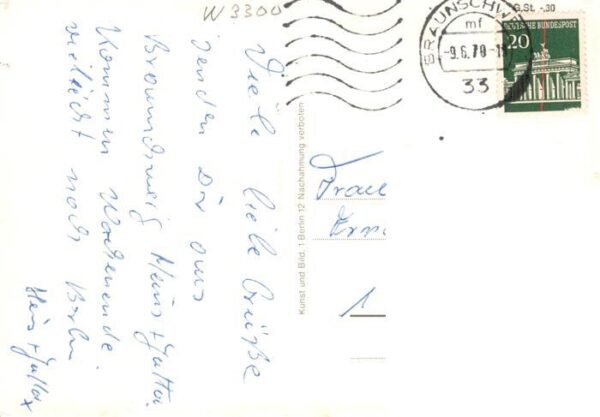 W 3300
Viele liebe Grüße
senden Dir aus
Braunschweig Heinz + Jutta.
Kommen Wochenende
vielleicht nach Berlin
Heinz + Jutta
Kunst und Bild, 1 Berlin 12 Nachahmung verboten
BRAUNSCHW
mf
-9.6.70
33
G.St. -.30
DEUTSCHE BUNDESPOST
20
Frau
Erna
1